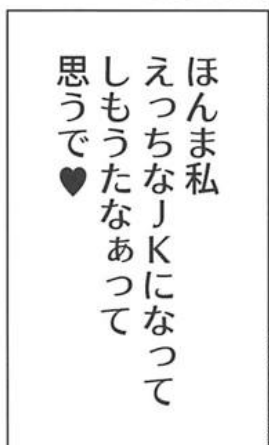 ほんま私
えっちなＪＫになって
しもうたなぁって
思うで♥